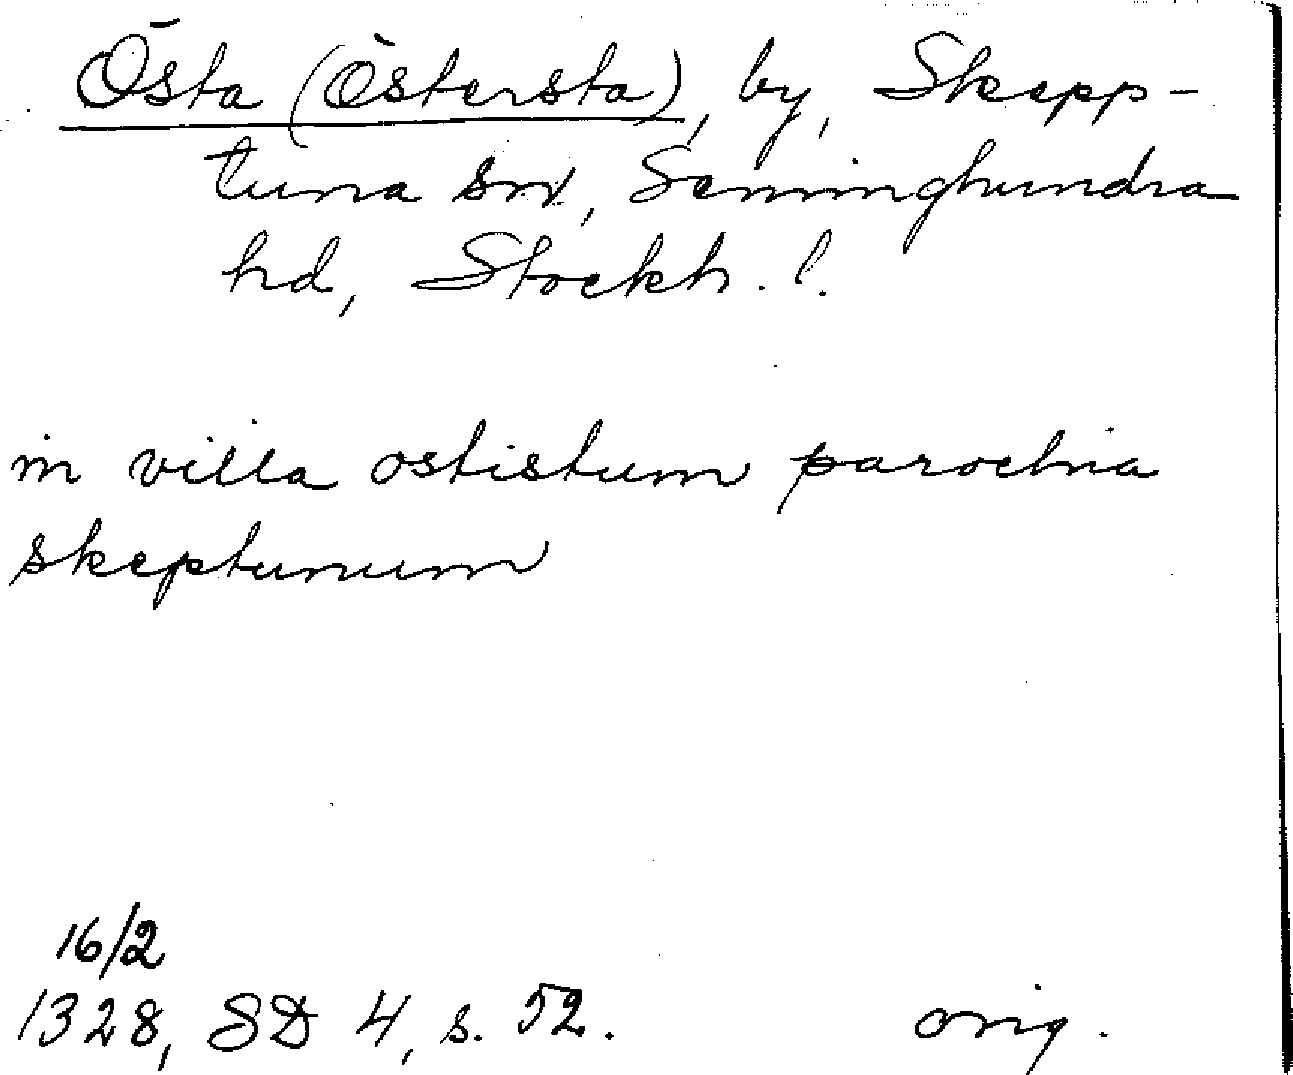 Östa (Östersta), by, Skepp-
tuna sn, Seminghundra
hd, Stockh. l.
in villa ostistum parochia
skeptunum
16/2
1328, SD 4, s. 52. orig.